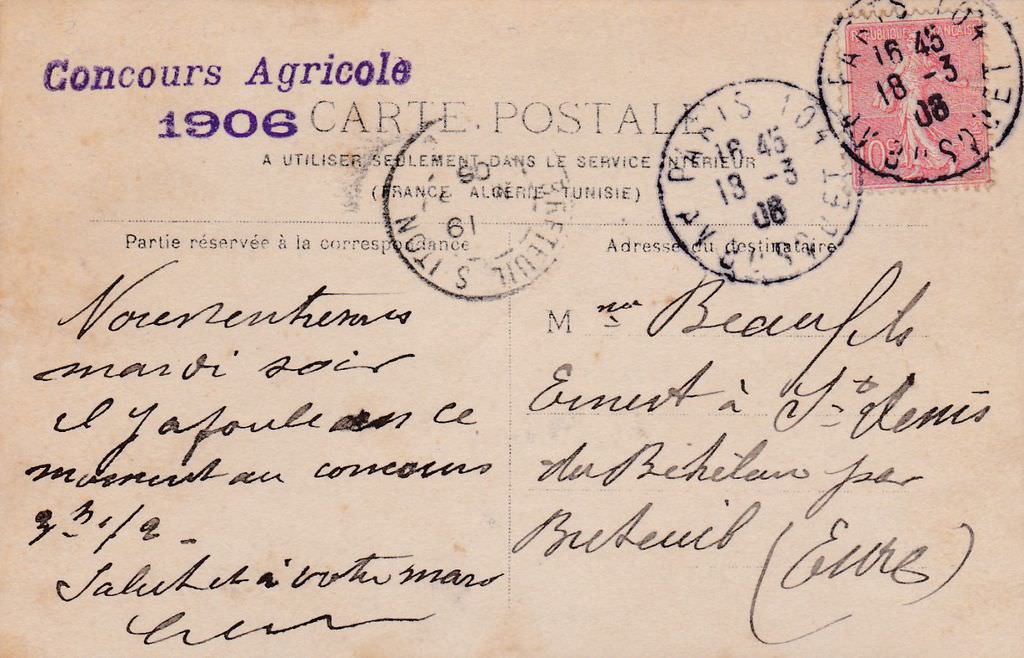 Concours Agricole
1906
CARTE POSTALE
A UTILISER SEULEMENT DANS LE SERVICE INTÉRIEUR
(FRANCE ALGÉRIE TUNISIE)
Partie réservée à la correspondance
Nous rentrerons
mardi soir
il y a foule en ce
moment au concours
3 h 1/2
Salut et à votre mari
Adresse du destinataire
M me Beaufils
Ernest à St Denis
du Béhélan par
Breteuil (Eure)
PARIS 104
16 45
18 -3
06
AV. BOSQUET
PARIS 104
16 45
18 -3
06
AV. BOSQUET
BRETEUIL S ITON
19
06
REPUBLIQUE FRANÇAISE
10